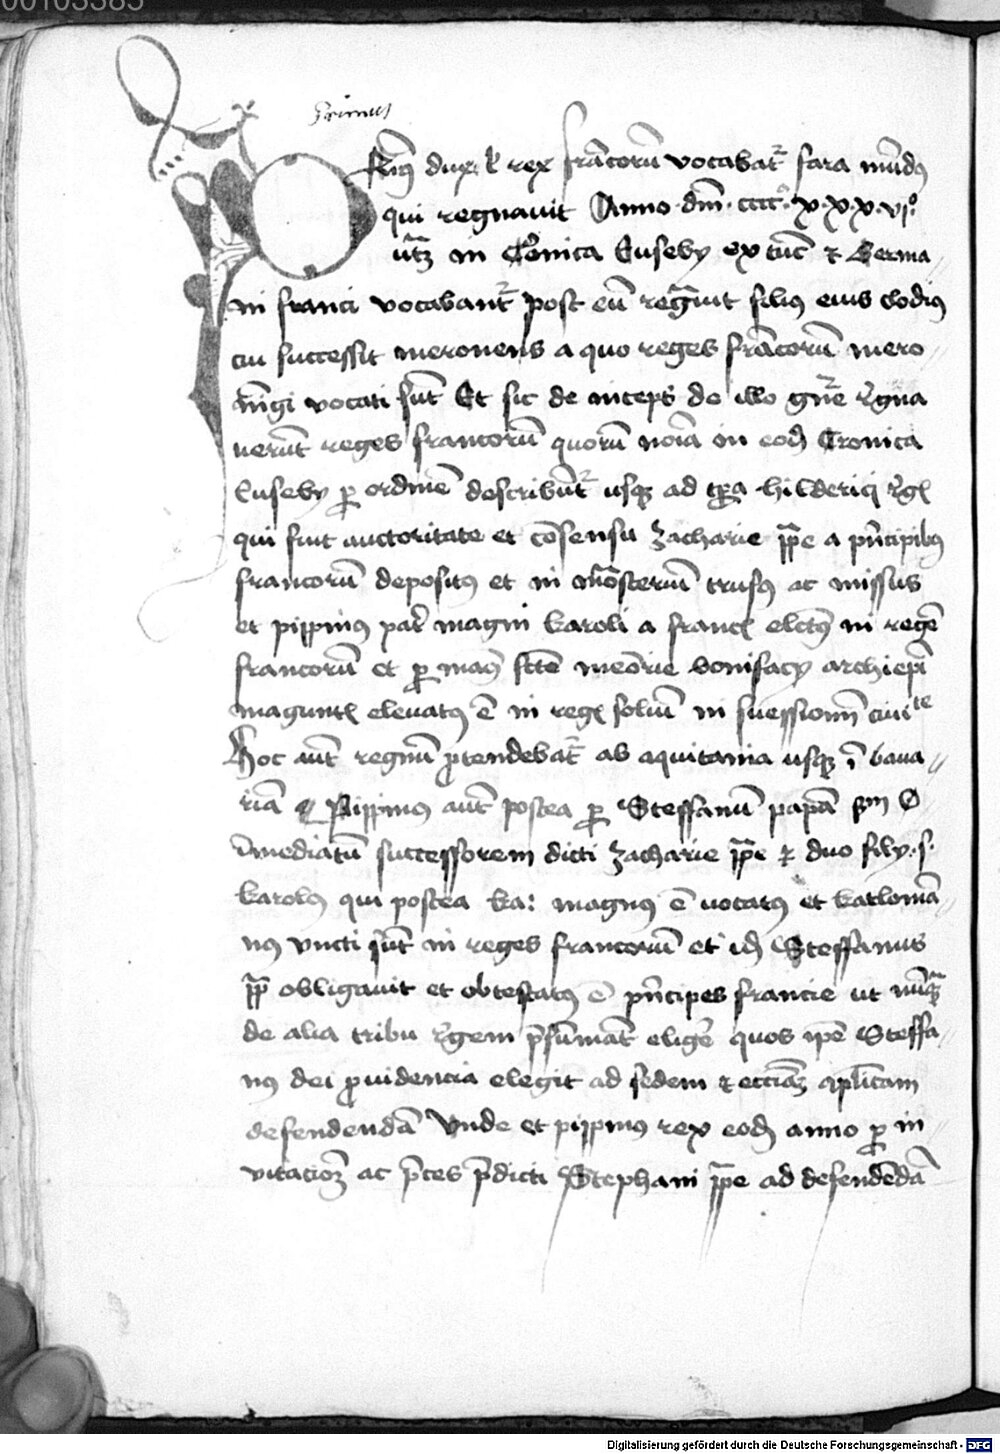 00103385
Primus
Primus dux et rex francorum vocabatur fara mundus
qui regnavit Anno dm cccc xxxvi
in Cronica Eusebÿ ex tunc et Germa
ni franci vocabantur post eum regnavit filius eius clodius
cui successit meroueus a quo reges francorum mero
vocati sunt Et sic de inceps de illo genere regna
uerunt reges francorum quorum nomina in eodem Cronica
Eusebÿ per ordinem describuntur usque ad hilderici
qui fuit auctoritate et consensu zacharie pape a principibus
francorum depositus et in monasterium trusus ac missus
et pippinus pater magni karoli a electus in regem
francorum et per manus sancte memorie bonifacÿ archiepi
elevatus est in solium in ciuite
Hoc autem regnum protendebatur ab aquitania usque in baua
riam Pippinus autem postea per Steffanum papam
immediatum successorem dicti zacharie pape et duo filÿ s
karolus qui postea ka: magnus est uocatus et karloman
nus vncti sunt in reges francorum et idem Steffanus
papa obligauit et obtestatus est principes francie ut nunquam
de alia tribu regem presumant eligere quos ipse Steffa
nus dei prouidencia elegit ad sedem et apostolicam
defendendam Vnde et pippinus rex eodem anno per in
uitacionem ac preces predicti Stephani pape ad defendendam
Digitalisierung gefördert durch die Deutsche Forschungsgemeinschaft - DFG